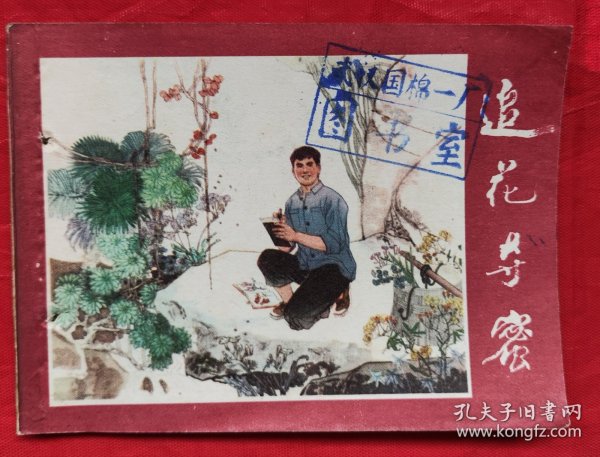 追花夺蜜
武汉国棉一厂
图书室
孔夫子旧书网
www.kongfz.com